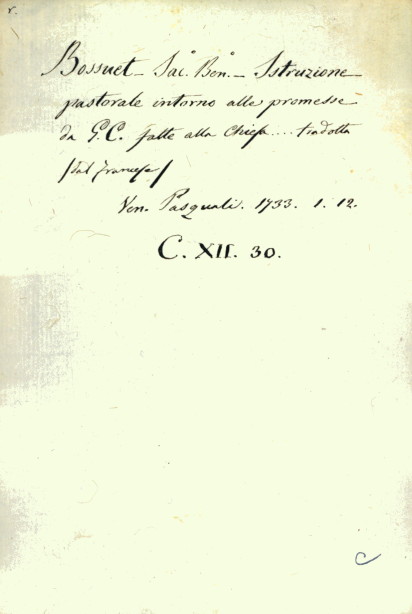 r.
Bossuet - Jac. Ben. - Istruzione
pastorale intorno alle promesse
da G.C. fatte alla Chiesa .... tradotta
/dal Francese/
Ven. Pasquali. 1733. 1. 12.
C. XII. 30.
C